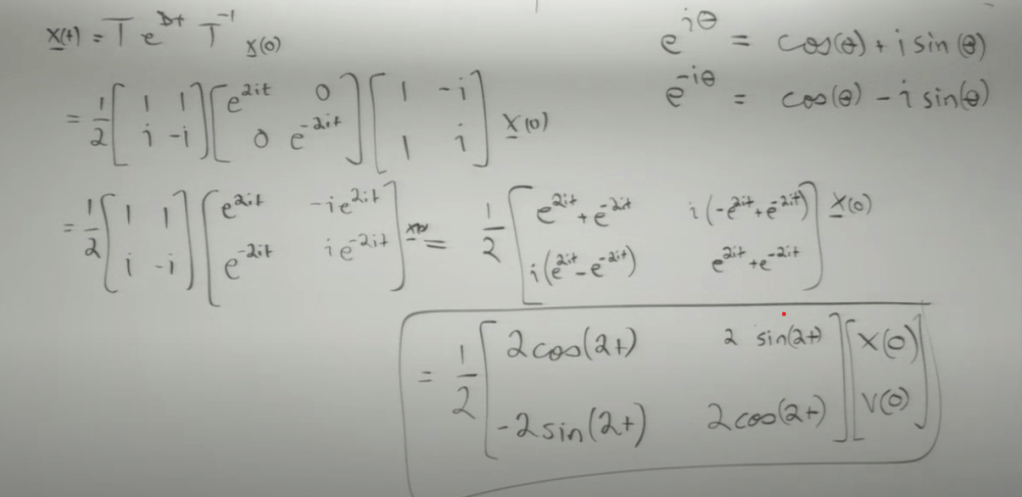 x(t) = T e^{Dt} T^{-1} x(0)
e^{iθ} = cos(θ) + i sin(θ)
e^{-iθ} = cos(θ) - i sin(θ)
= 1/2 [1 1; i -i] [e^{2it} 0; 0 e^{-2it}] [1 -i; 1 i] x(0)
= 1/2 [1 1; i -i] [e^{2it} -ie^{2it}; e^{-2it} ie^{-2it}] x(0) = 1/2 [e^{2it}+e^{-2it} i(-e^{2it}+e^{-2it}); i(e^{2it}-e^{-2it}) e^{2it}+e^{-2it}] x(0)
= 1/2 [2cos(2t) 2 sin(2t); -2sin(2t) 2cos(2t)] [x(0); v(0)]